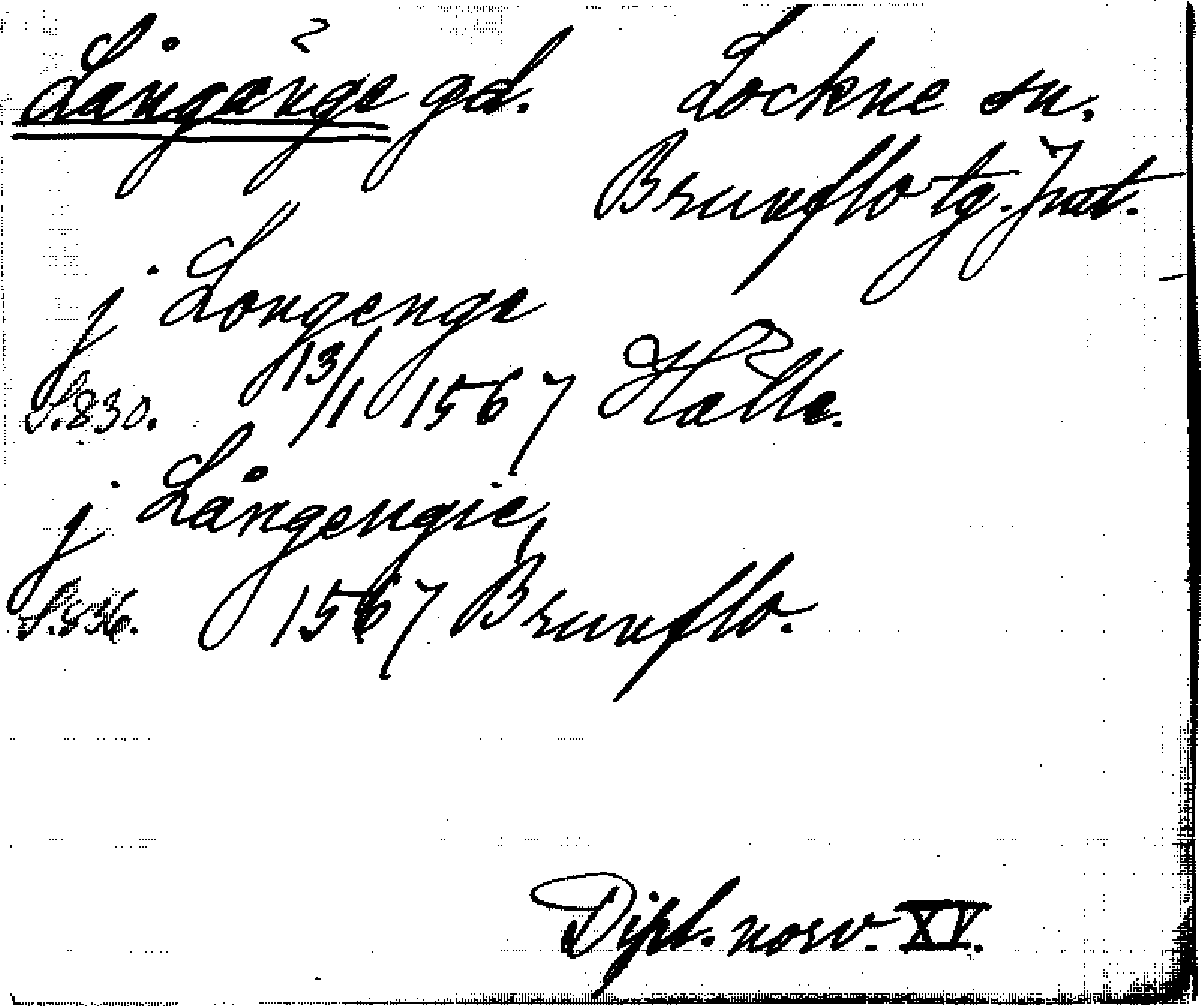 Långänge gd. Lockne sn.
Brunflo tg. Jmt.
j Longenge
S. 830. 13/1 1567 Hälle.
j Långengie,
S. 836. 1567 Brunflo.
Dipl. norv. XV.